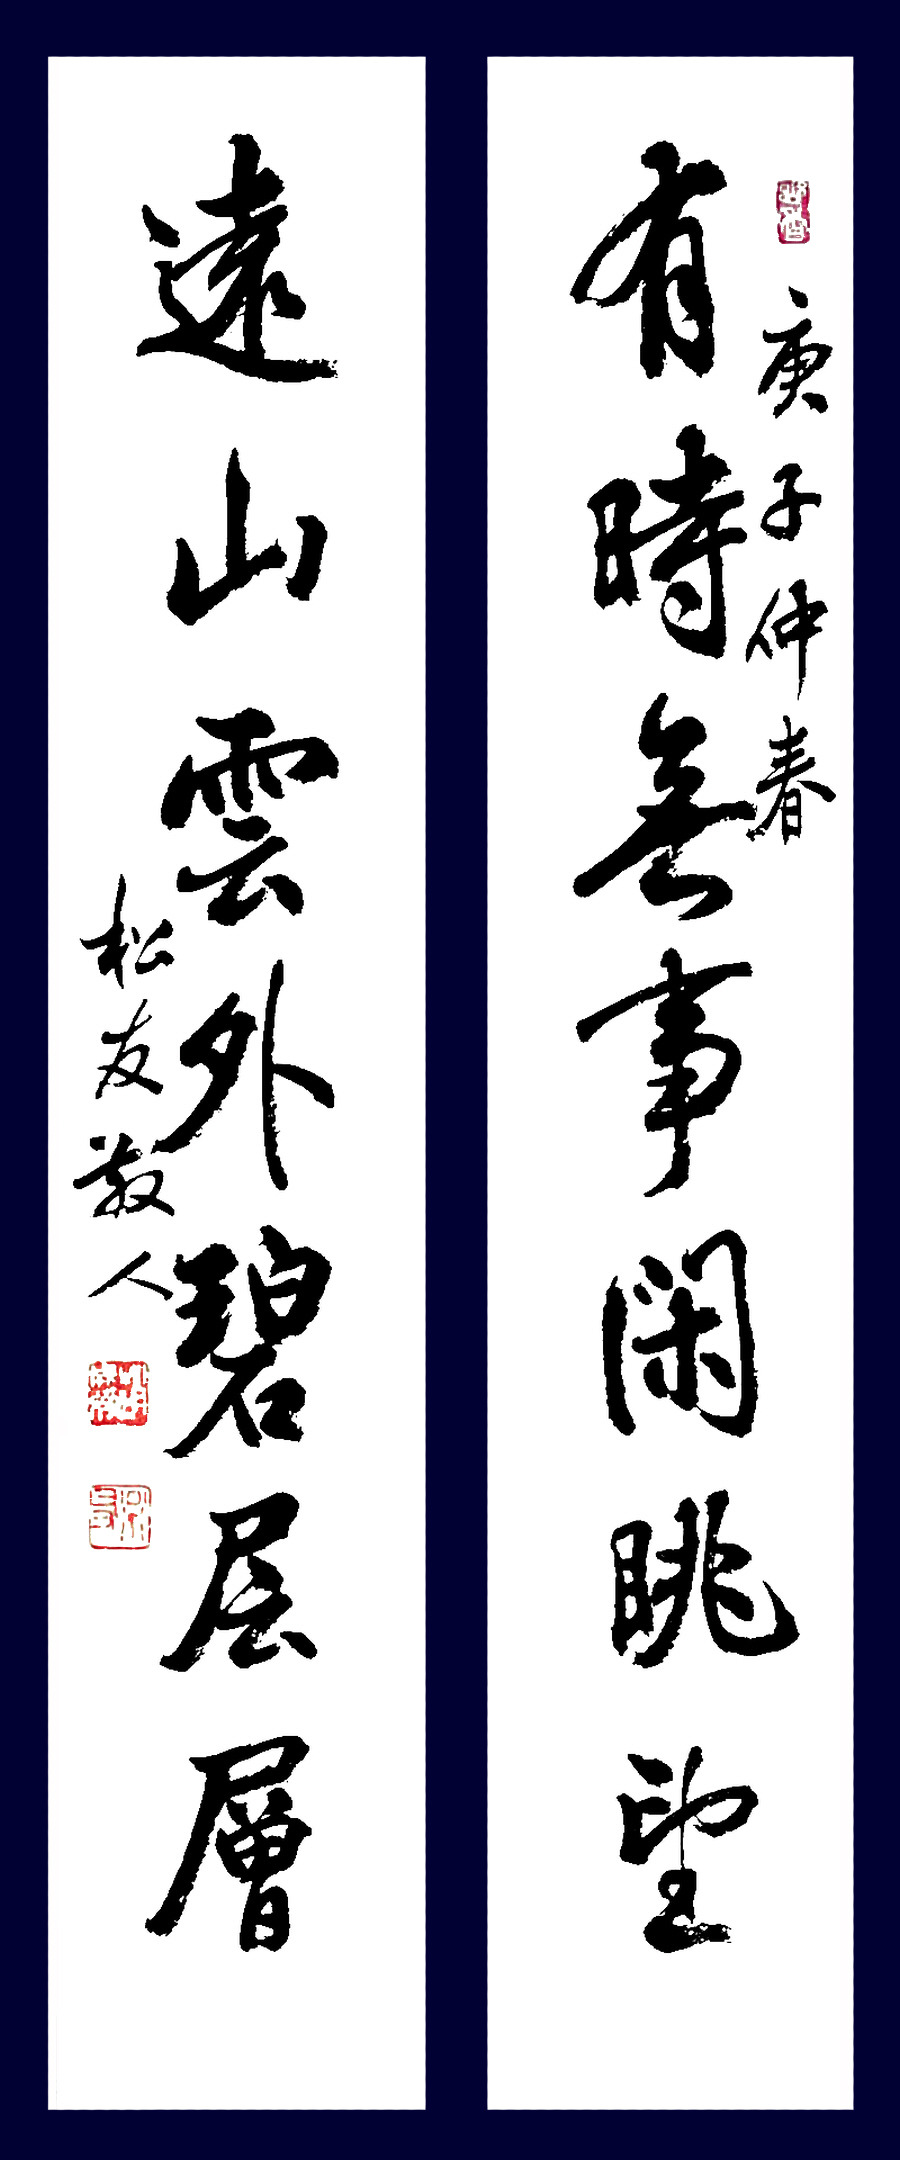 庚子仲春
有時無事閑眺望
遠山雲外碧层層
松友散人